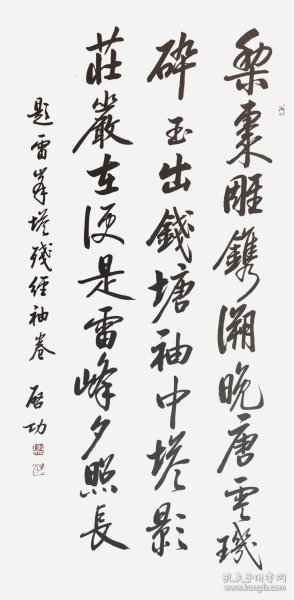 梨棗雕鐫溯晚唐零璣
碎玉出錢塘袖中塔影
莊嚴在便是雷峰夕照長
題雷峯塔殘經袖卷 啟功
孔夫子旧书网